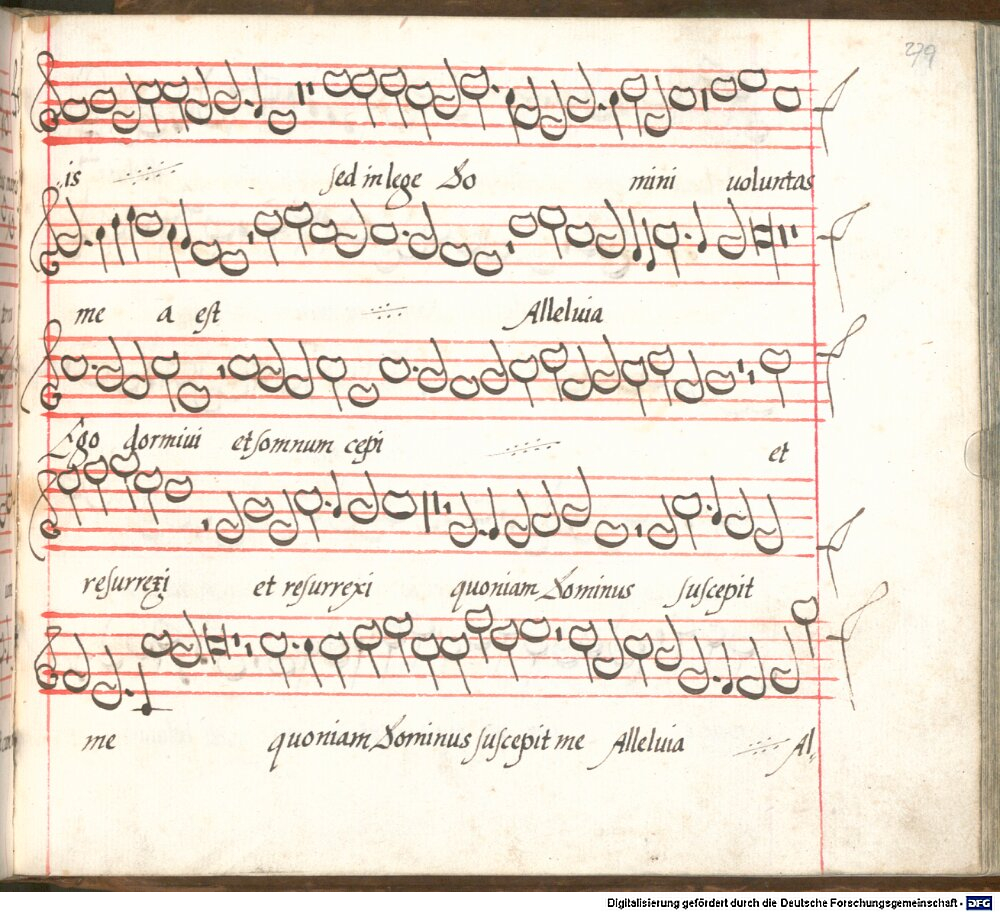 279
is sed in lege Do mini uoluntas
me a est Alleluia
Ego dormiui et somnum cepi et
resurrexi et resurrexi quoniam Dominus suscepit
me quoniam Dominus suscepit me Alleluia Al,,
Digitalisierung gefördert durch die Deutsche Forschungsgemeinschaft - DFG